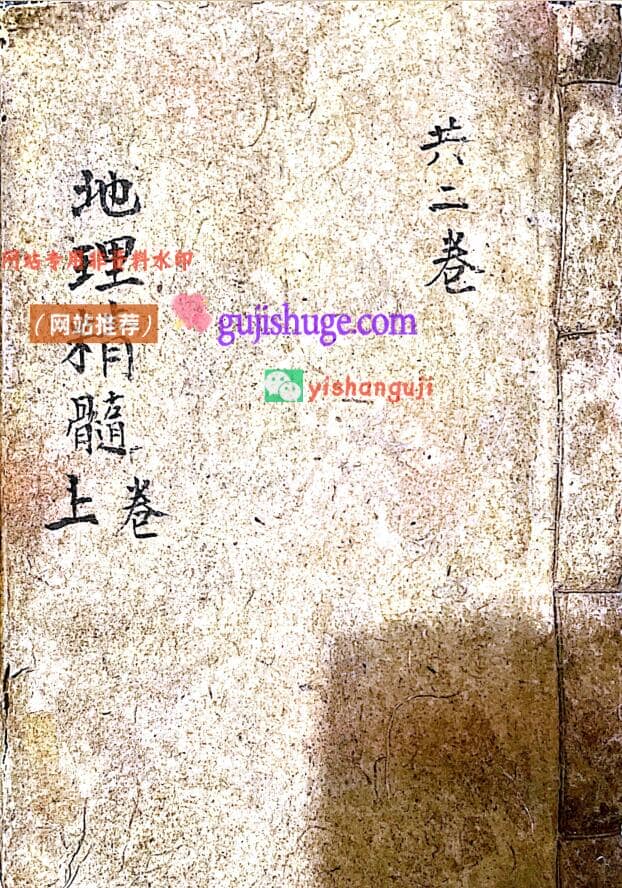 共二卷
地理精髓
上卷
网站专用非资料水印
（网站推荐）
gujishuge.com
yishanguji